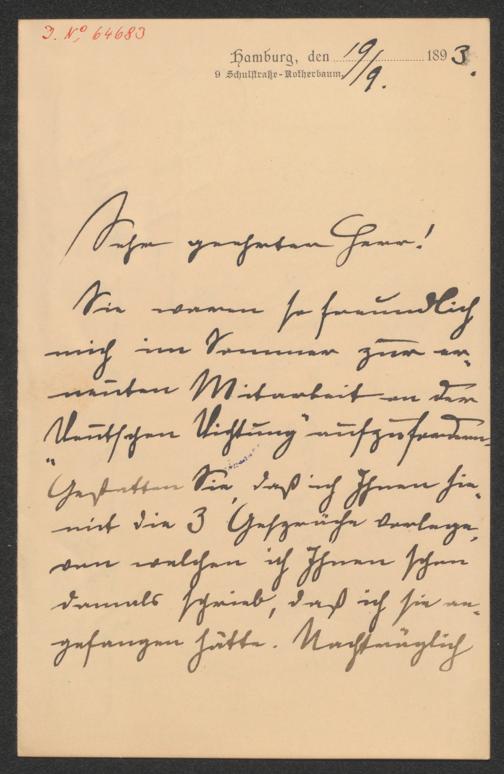 D. No, 64683
Hamburg, den 19/9. 1893.
9 Schulstraße-Rotherbaum.
Sehr geehrter Herr!
Sie waren so freundlich
mich im Sommer zur er-
neuten Mitarbeit an der
"Deutschen Dichtung" aufzufordern.
Gestatten Sie, daß ich Ihnen hie-
mit die 3 Gespräche vorlege,
von welchen ich Ihnen schon
damals schrieb, daß ich sie an-
gefangen hätte. Nachträglich